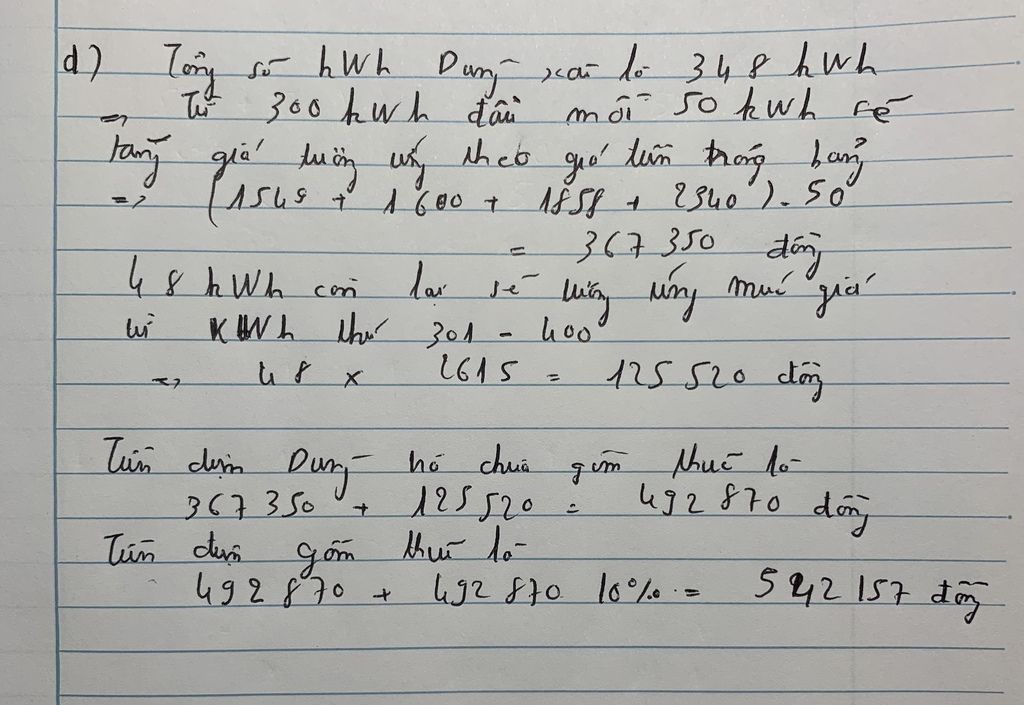 d) Tổng số kWh Dung xài là 348 kWh
=> Từ 300 kWh đầu mỗi 50 kWh sẽ
tăng giá tương ứng theo giá tiền trong bảng
=> (1549 + 1600 + 1858 + 2340) . 50
= 367 350 đồng
48 kWh còn lại sẽ tương ứng mức giá
từ kWh thứ 301 - 400
=> 48 x 2615 = 125 520 đồng
Tiền điện Dung chưa gồm thuế là
367 350 + 125 520 = 492 870 đồng
Tiền điện gồm thuế là
492 870 + 492 870 . 10% = 542 157 đồng